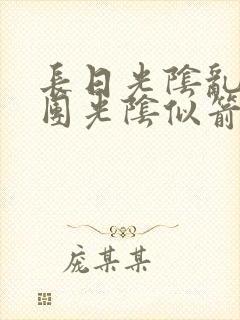 長日光陰亂
團光陰似箭
庞某某